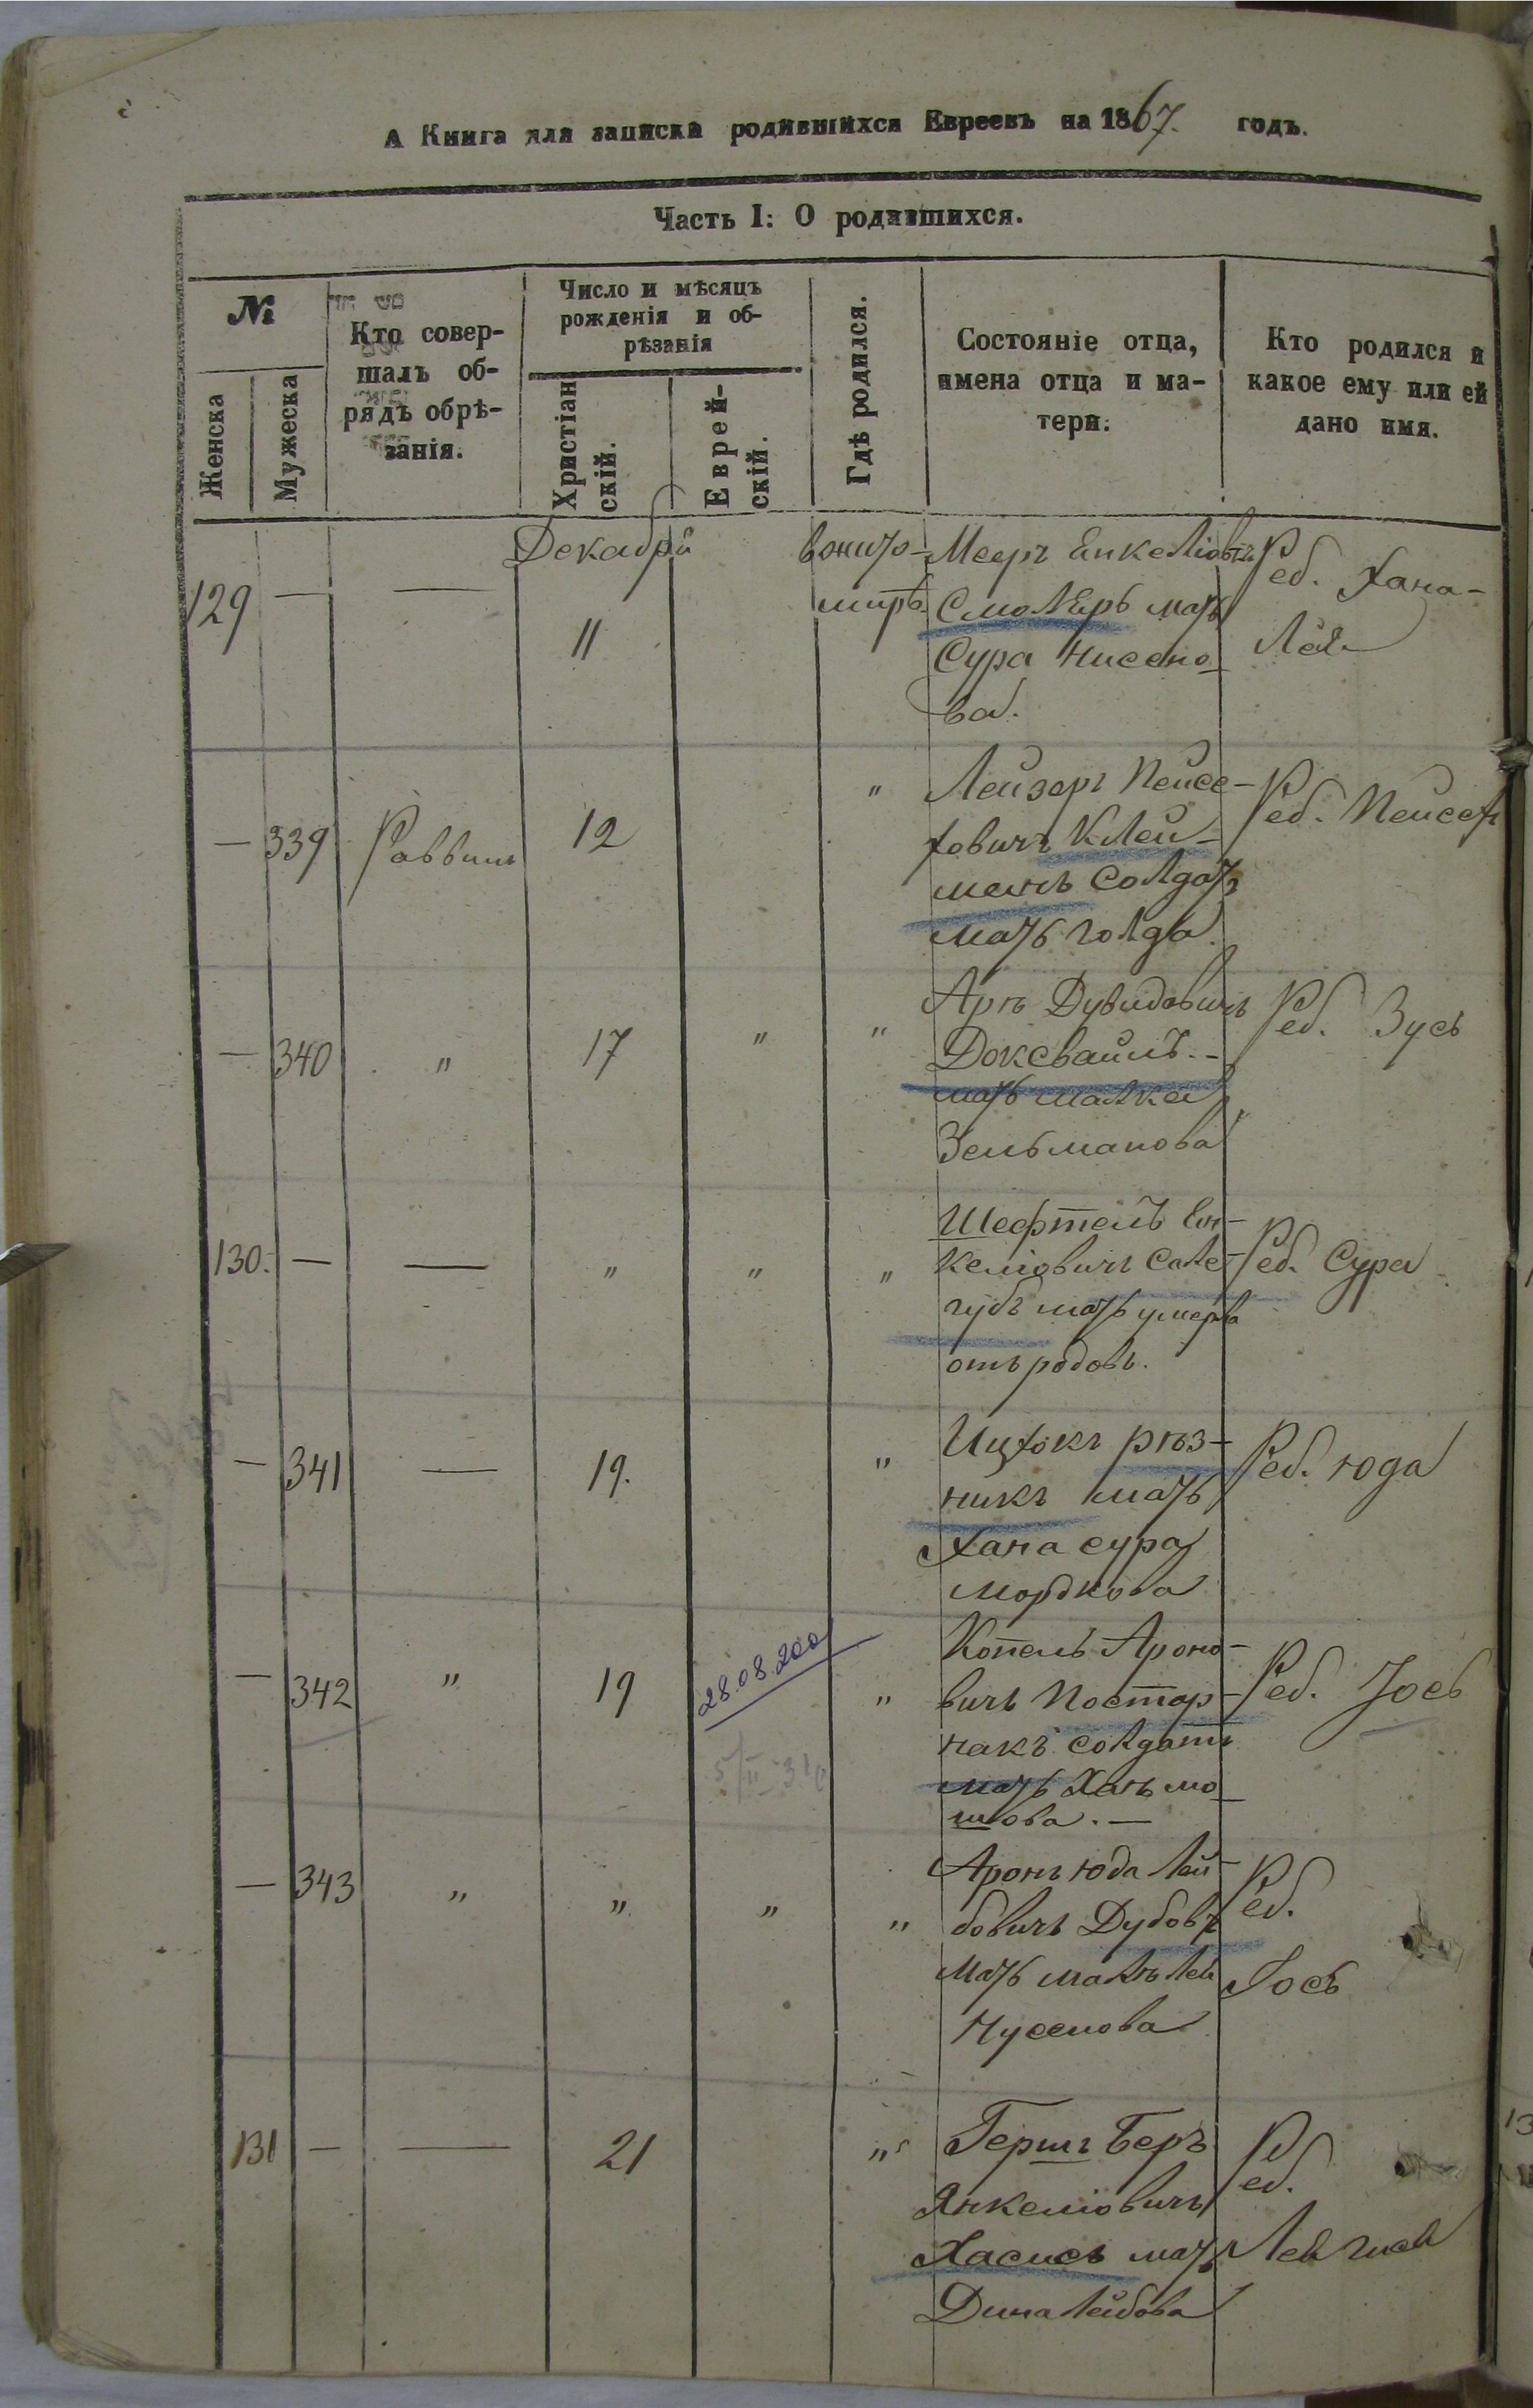 А Книга для записки родившихся Евреевъ на 1867. годъ.
Часть I: О родившихся.
№
Женска
Мужеска
Кто совер-
шалъ об-
рядъ обрѣ-
занія.
Число и мѣсяцъ
рожденія и об-
рѣзанія
Христіан
скій.
Еврей-
скій.
Гдѣ родился.
Состояніе отца,
имена отца и ма-
тери.
Кто родился и
какое ему или ей
дано имя.
Декабрй
129 — — 11
Мееръ Енкеліовичъ
Смолеръ мать
Сура Нисено-
ва.
Реб. Хана-
Лея
— 339 Раввинъ 12 "
Лейзеръ Пейсе-
ховичъ Клей-
манъ солдатъ
мать Голда
Реб. Пейсехъ
— 340 " 17 " "
Арнъ Дувидовичъ
Доксваилъ.-
мать Малка
Зельманова
Реб. Зусь
130. — — " " "
Шефтель Ен-
келіовичъ Сале-
губъ мать умерла
отъ родовъ.
Реб. Сура
— 341 — 19. "
Ицхокъ рѣз-
никъ мать
Хана сура
Мордкова
Реб. юда
— 342 " 19 28.08.200 "
Копель Ароно-
вичъ Постер-
накъ солдатъ
мать Хань мо-
шова. —
Реб. Іось
— 343 " " " "
Аронъ юда Лей-
бовичъ Дубовъ
Мать малъ Лея
Нусенова
Реб.
Іось
131 — — 21 "
Гершъ Беръ
Янкеліовичъ
Хасисъ мать
Дина Лейбова
Реб.